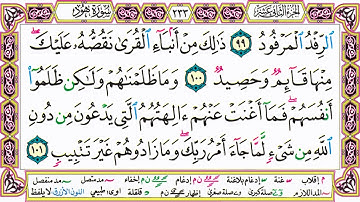 الجزء الثاني عشر ٢٣٣ سورة هود
الرِّفْدُ الْمَرْفُودُ ٩٩ ذَٰلِكَ مِنْ أَنبَاءِ الْقُرَىٰ نَقُصُّهُ عَلَيْكَ
مِنْهَا قَائِمٌ وَحَصِيدٌ ١٠٠ وَمَا ظَلَمْنَاهُمْ وَلَٰكِن ظَلَمُوا
أَنفُسَهُمْ فَمَا أَغْنَتْ عَنْهُمْ آلِهَتُهُمُ الَّتِي يَدْعُونَ مِن دُونِ
اللَّهِ مِن شَيْءٍ لَّمَّا جَاءَ أَمْرُ رَبِّكَ وَمَا زَادُوهُمْ غَيْرَ تَتْبِيبٍ ١٠١